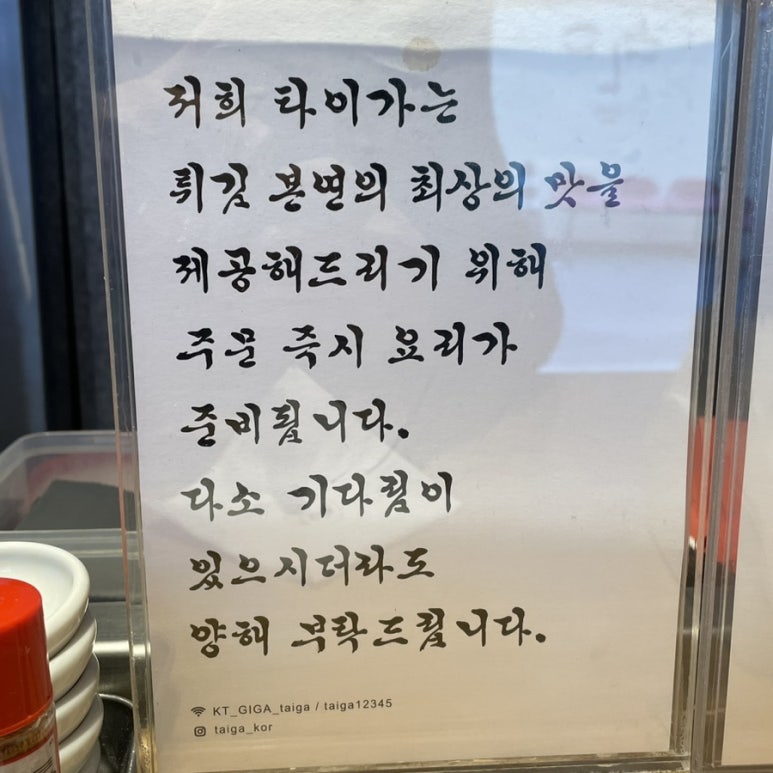 저희 타이가는
튀김 본연의 최상의 맛을
제공해드리기 위해
주문 즉시 요리가
준비됩니다.
다소 기다림이
있으시더라도
양해 부탁드립니다.
KT_GIGA_taiga / taiga12345
taiga_kor